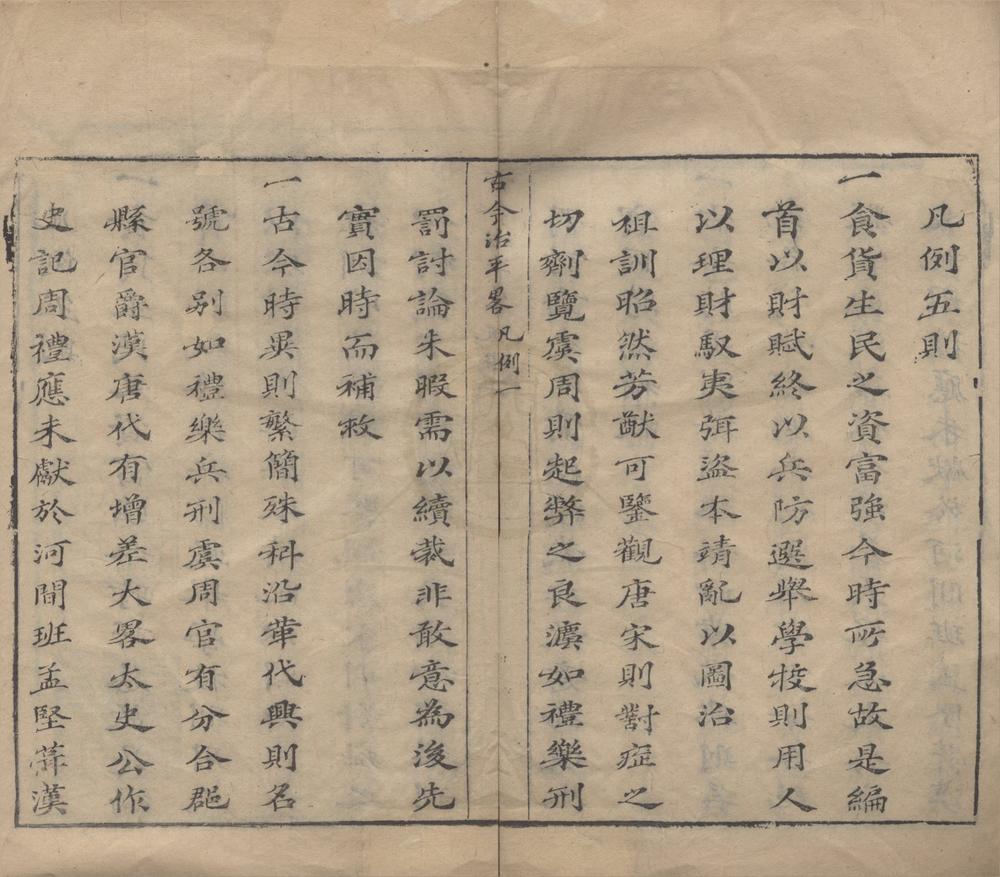 凡例五則
一食貨生民之資富強今時所急故是編
首以財賦終以兵防選舉學校則用人
以理財馭夷弭盜本靖亂以圖治
祖訓昭然芳猷可鑒觀唐宋則對症之
切劑覽虞周則起弊之良濵如禮樂刑
古今治平畧凡例一
罰討論未暇需以續裁非敢意為後先
實因時而補救
一古今時異則繁簡殊科沿革代興則名
號各別如禮樂兵刑虞周官有分合郡
縣官爵漢唐代有增差大畧太史公作
史記周禮應未獻於河間班孟堅葺漢